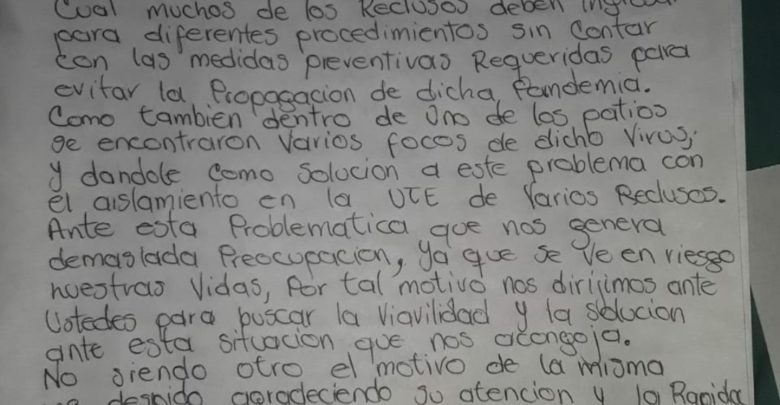 Cual muchos de los Reclusos deben
para diferentes procedimientos sin Contar
con las medidas preventivas Requeridas para
evitar la Propagacion de dicha Pandemia.
Como tambien dentro de Uno de los patios
se encontraron Varios focos de dicho Virus,
y dandole Como Solucion a este problema con
el aislamiento en la UTE de Varios Reclusos.
Ante esta Problematica que nos genera
demasiada Preocupacion, Ya que se Ve en riesgo
nuestras Vidas, Por tal motivo nos dirijimos ante
Ustedes para buscar la Viavilidad y la solucion
ante esta situacion que nos acongoja.
No siendo otro el motivo de la misma
despido agradeciendo su atencion y la Rapida